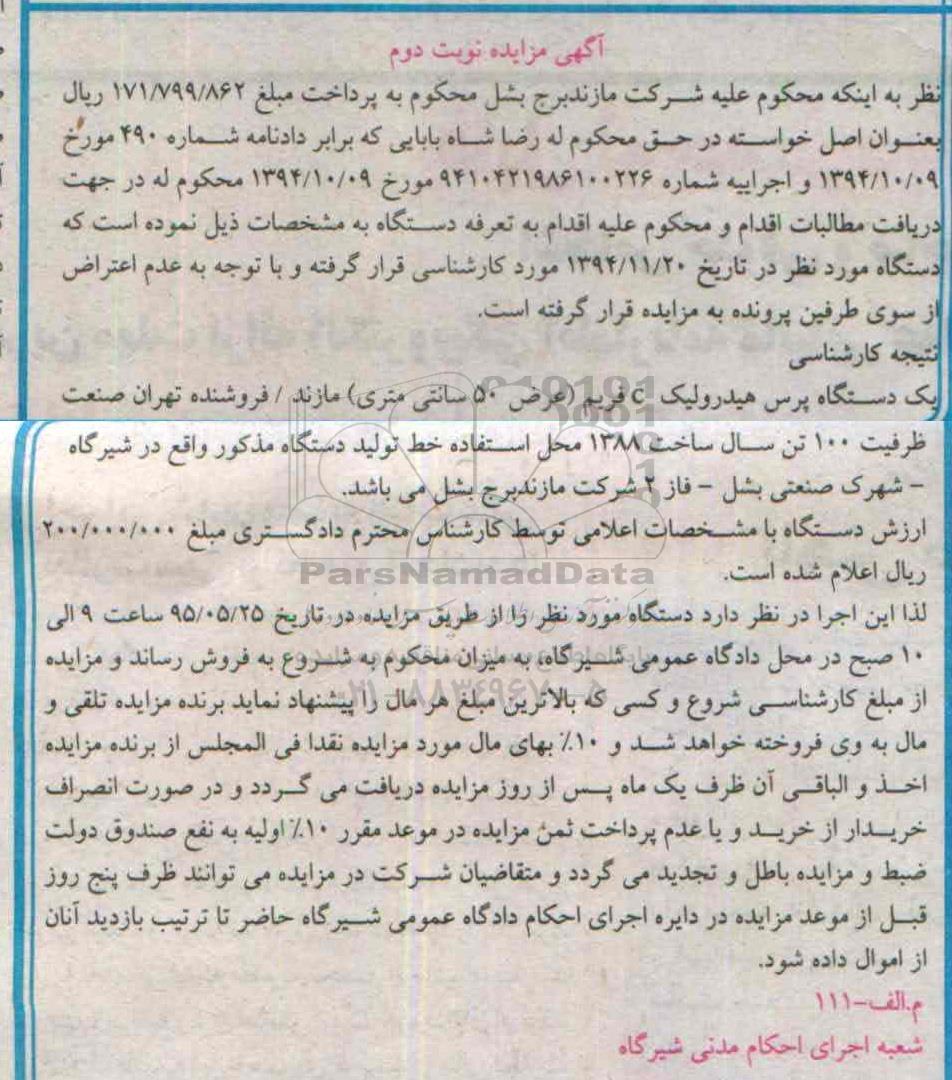 آگهی مزایده نوبت دوم
نظر به اینکه محکوم علیه شرکت مازندبرج بشل محکوم به پرداخت مبلغ ۱۷۱/۷۹۹/۸۶۲ ریال
بعنوان اصل خواسته در حق محکوم له رضا شاه بابایی که برابر دادنامه شماره ۴۹۰ مورخ
۱۳۹۴/۱۰/۰۹ و اجراییه شماره ۹۴۱۰۴۲۱۹۸۶۱۰۰۲۲۶ مورخ ۱۳۹۴/۱۰/۰۹ محکوم له در جهت
دریافت مطالبات اقدام و محکوم علیه اقدام به تعرفه دستگاه به مشخصات ذیل نموده است که
دستگاه مورد نظر در تاریخ ۱۳۹۴/۱۱/۲۰ مورد کارشناسی قرار گرفته و با توجه به عدم اعتراض
از سوی طرفین پرونده به مزایده قرار گرفته است.
نتیجه کارشناسی
یک دستگاه پرس هیدرولیک c فریم (عرض ۵۰ سانتی متری) مازند / فروشنده تهران صنعت
ظرفیت ۱۰۰ تن سال ساخت ۱۳۸۸ محل استفاده خط تولید دستگاه مذکور واقع در شیرگاه
– شهرک صنعتی بشل – فاز ۲ شرکت مازندبرج بشل می باشد.
ارزش دستگاه با مشخصات اعلامی توسط کارشناس محترم دادگستری مبلغ ۲۰۰/۰۰۰/۰۰۰
ریال اعلام شده است.
ParsNamadData
لذا این اجرا در نظر دارد دستگاه مورد نظر را از طریق مزایده در تاریخ ۹۵/۰۵/۲۵ ساعت ۹ الی
۱۰ صبح در محل دادگاه عمومی شیرگاه، به میزان محکوم به شروع به فروش رساند و مزایده
۰۲۱-۸۸۳۴۹۶۷۰-۵
از مبلغ کارشناسی شروع و کسی که بالاترین مبلغ هر مال را پیشنهاد نماید برنده مزایده تلقی و
مال به وی فروخته خواهد شد و ۱۰٪ بهای مال مورد مزایده نقدا فی المجلس از برنده مزایده
اخذ و الباقی آن ظرف یک ماه پس از روز مزایده دریافت می گردد و در صورت انصراف
خریدار از خرید و یا عدم پرداخت ثمن مزایده در موعد مقرر ۱۰٪ اولیه به نفع صندوق دولت
ضبط و مزایده باطل و تجدید می گردد و متقاضیان شرکت در مزایده می توانند ظرف پنج روز
قبل از موعد مزایده در دایره اجرای احکام دادگاه عمومی شیرگاه حاضر تا ترتیب بازدید آنان
از اموال داده شود.
م.الف-۱۱۱
شعبه اجرای احکام مدنی شیرگاه